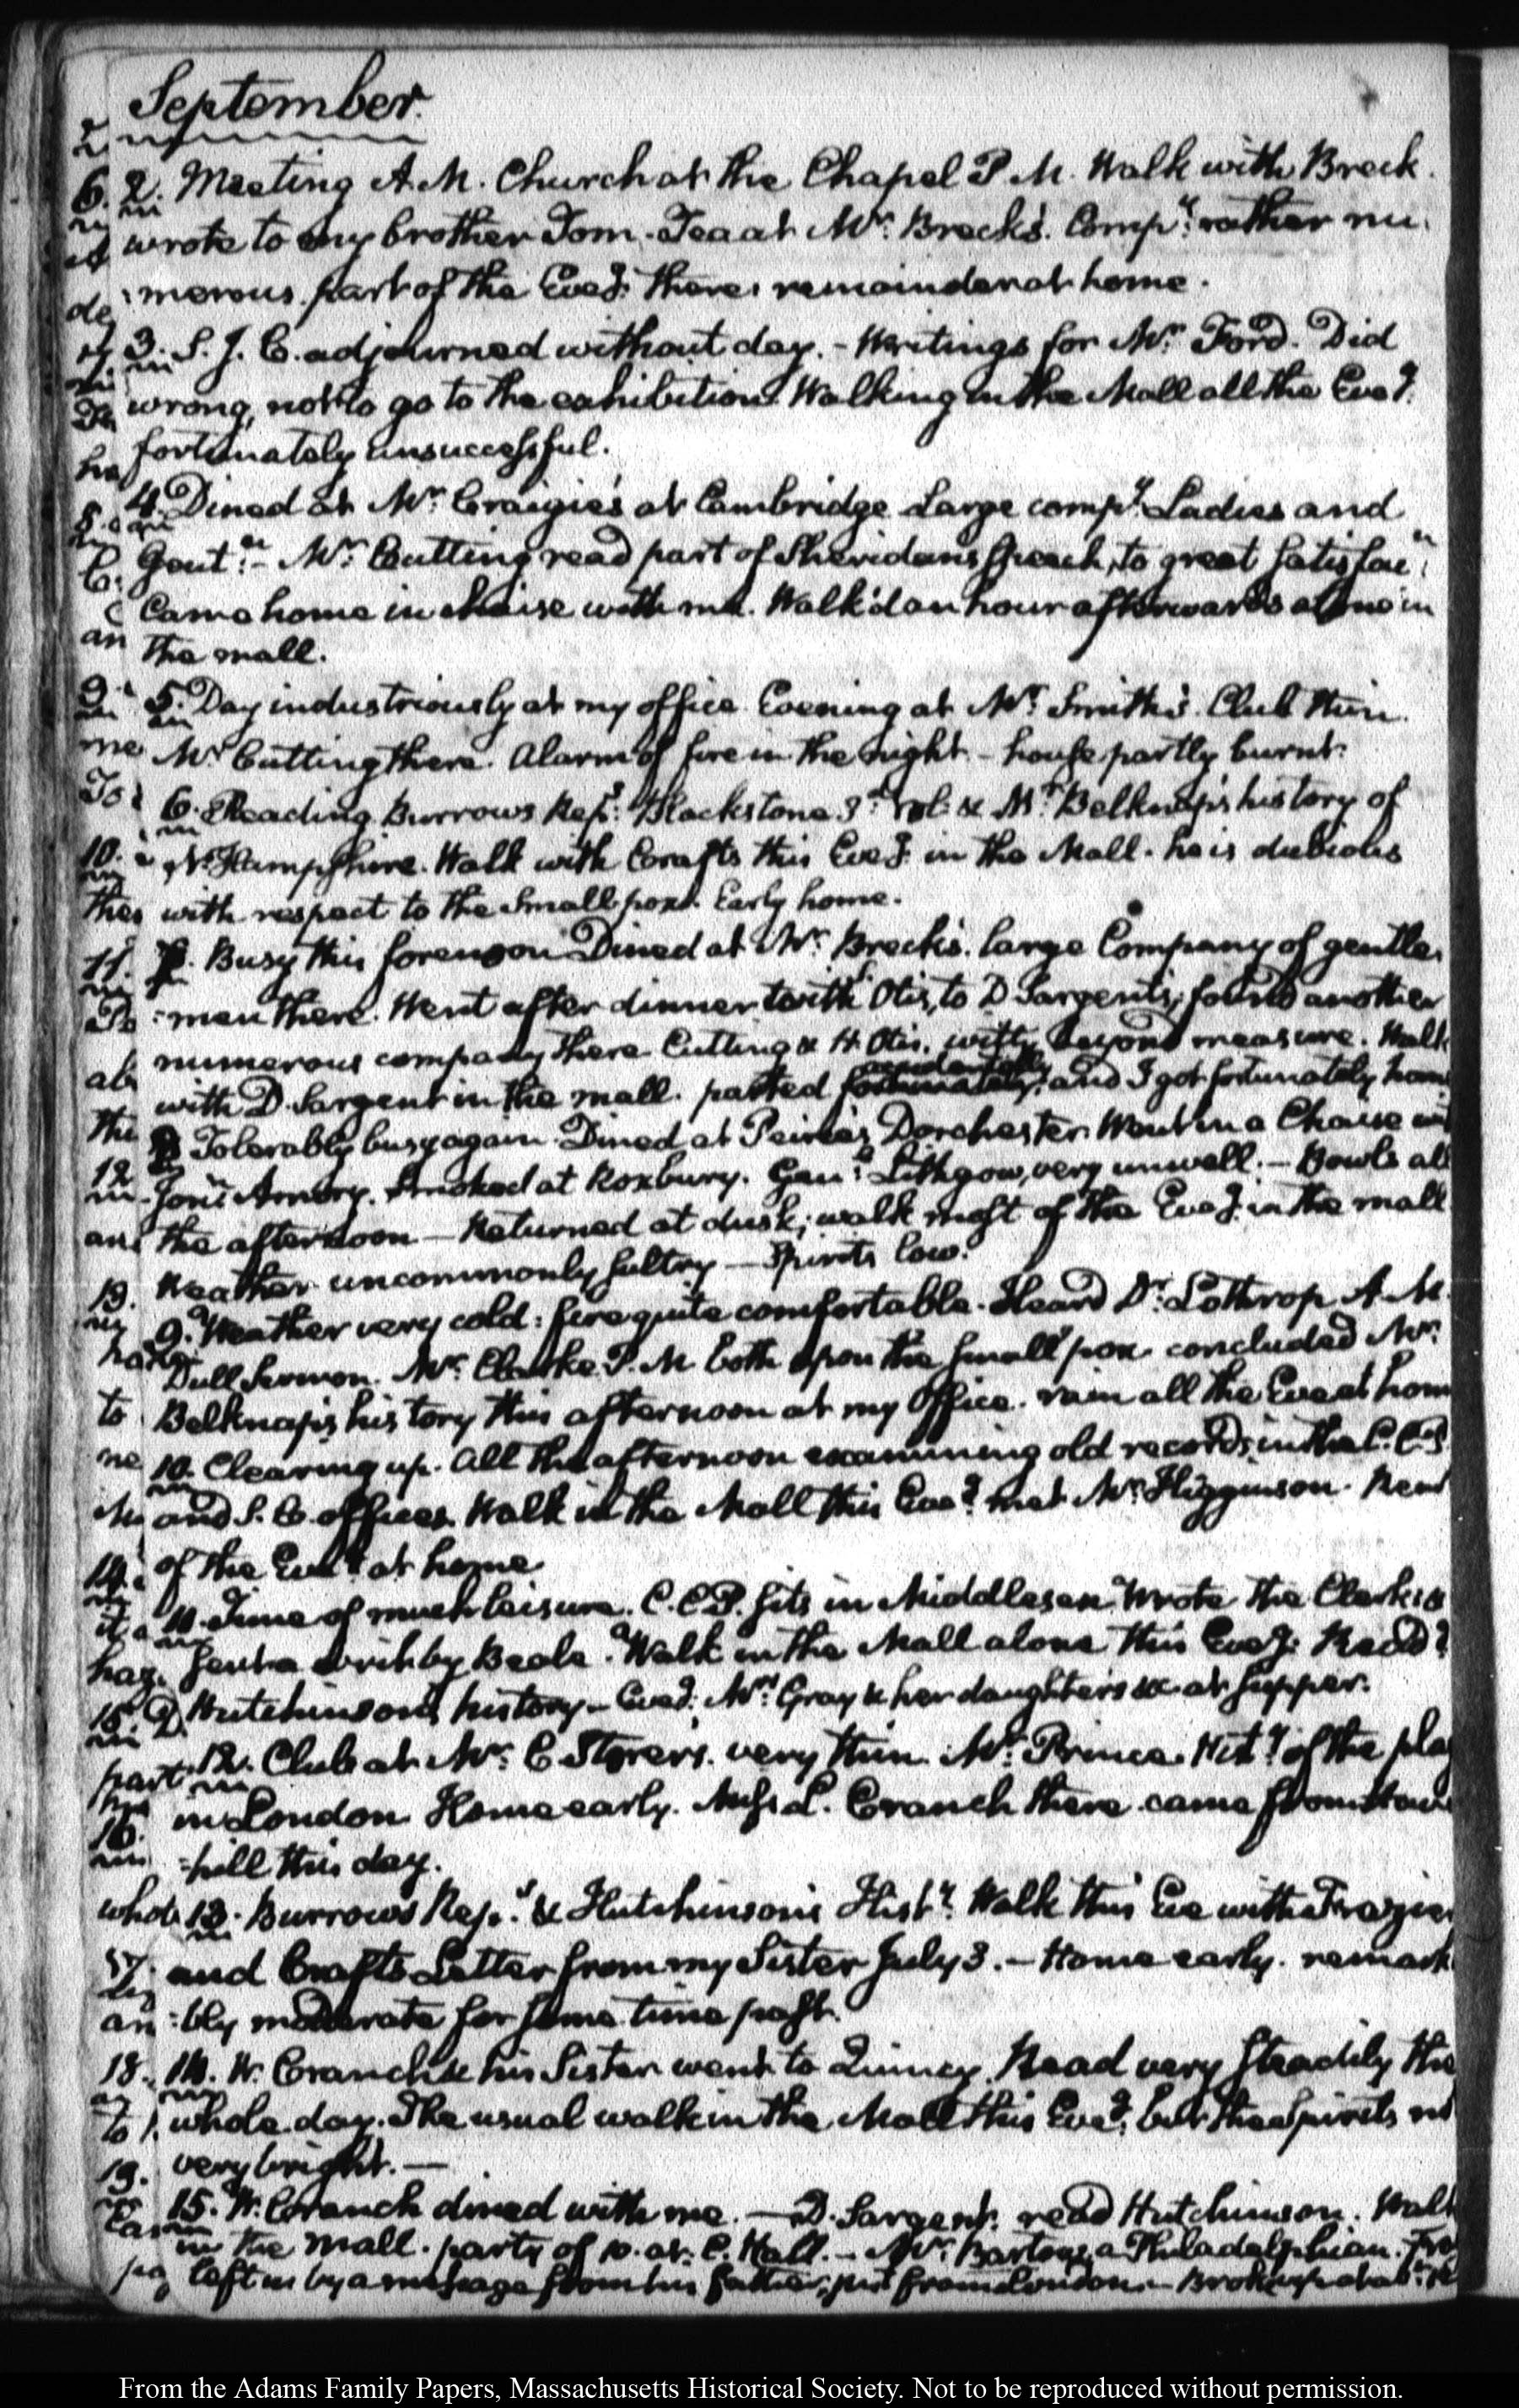 September.
2. Meeting A.M. Church at the Chapel P.M. Walk with Breck.
wrote to my brother Tom. Tea at Mr. Breck's. Compy. rather nu-
:merous. part of the Eveg. there: remainder at home.
3. S. J. C. adjourned without day. - Writings for Mr. Ford. Did
wrong, not to go to the exhibition. Walking in the Mall all the Eveg.
fortunately unsuccessful.
4. Dined at Mr. Craigie's at Cambridge. Large compy. Ladies and
Gent:n - Mr. Cutting read part of Sheridans Speech, to great satisfac:n
Came home in chaise with me. Walk'd an hour afterwards alone in
the mall.
5. Day industriously at my office. Evening at Mr. Smith's. Club thin.
Mr. Cutting there. Alarm of fire in the night - house partly burnt.
6. Reading Burrows Reps. Blackstone 3d. vol: & Mr. Belknap's history of
N. Hampshire. Walk with Crafts this Eveg. in the Mall. he is dubious
with respect to the Small pox. Early home.
7. Busy this forenoon. Dined at Mr. Breck's. large Company of gentle-
:men there. Went after dinner with S. Otis, to D Sargent's; found another
numerous company there. Cutting & H Otis. witty beyond measure. Walk
with D. Sargent in the mall. parted accidentally, and I got fortunately home
8 Tolerably busy again. Dined at Peirce's Dorchester. Went in a Chaise with
Jon:n Amory. Smoked at Roxbury. Gen:l Lithgow, very unwell. - Bowls all
the afternoon - Returned at dusk; walk most of the Eveg. in the mall
Weather uncommonly sultry - Spirits low.
9. Weather very cold: fire quite comfortable. Heard Dr. Lothrop A.M.
Dull Sermon. Mr. Clarke P.M. both upon the small pox. concluded Mr.
Belknap's history this afternoon at my Office. rain all the Eve at home
10. Clearing up. All the afternoon examining old records in the C. C. P.
and S. C. offices. Walk in the Mall this Eveg. met Mr. Higginson. Rem
of the Eveg. at home
11. Time of much leisure. C. C. P. sits in Middlesex. Wrote the Clerk &
sent a writ by Beale. Walk in the Mall alone this Eveg. Read
Hutchinson's history - Eveg. Mrs. Gray & her daughters &c at supper.
12. Club at Mr. C Storer's. very thin. Mr. Prince. Hist:y of the plag
in London. Home early. Miss L. Cranch there. came from Haver
:hill this day.
13. Burrows Reps. & Hutchinson's Hist:y. Walk this Eve with Frazier
and Crafts. Letter from my Sister July 3. - Home early. remark
:bly moderate for some time past.
14. W. Cranch & his Sister went to Quincy. Read very steadily the
whole day. The usual walk in the Mall this Eveg. but the spirits not
very bright. -
15. W. Cranch dined with me. - D. Sargent. read Hutchinson. Walk
in the mall. party of 10. at C. Hall. - Mr. Barton, a Philadelphian.
left us by a message from his father, just from London. - Broke up